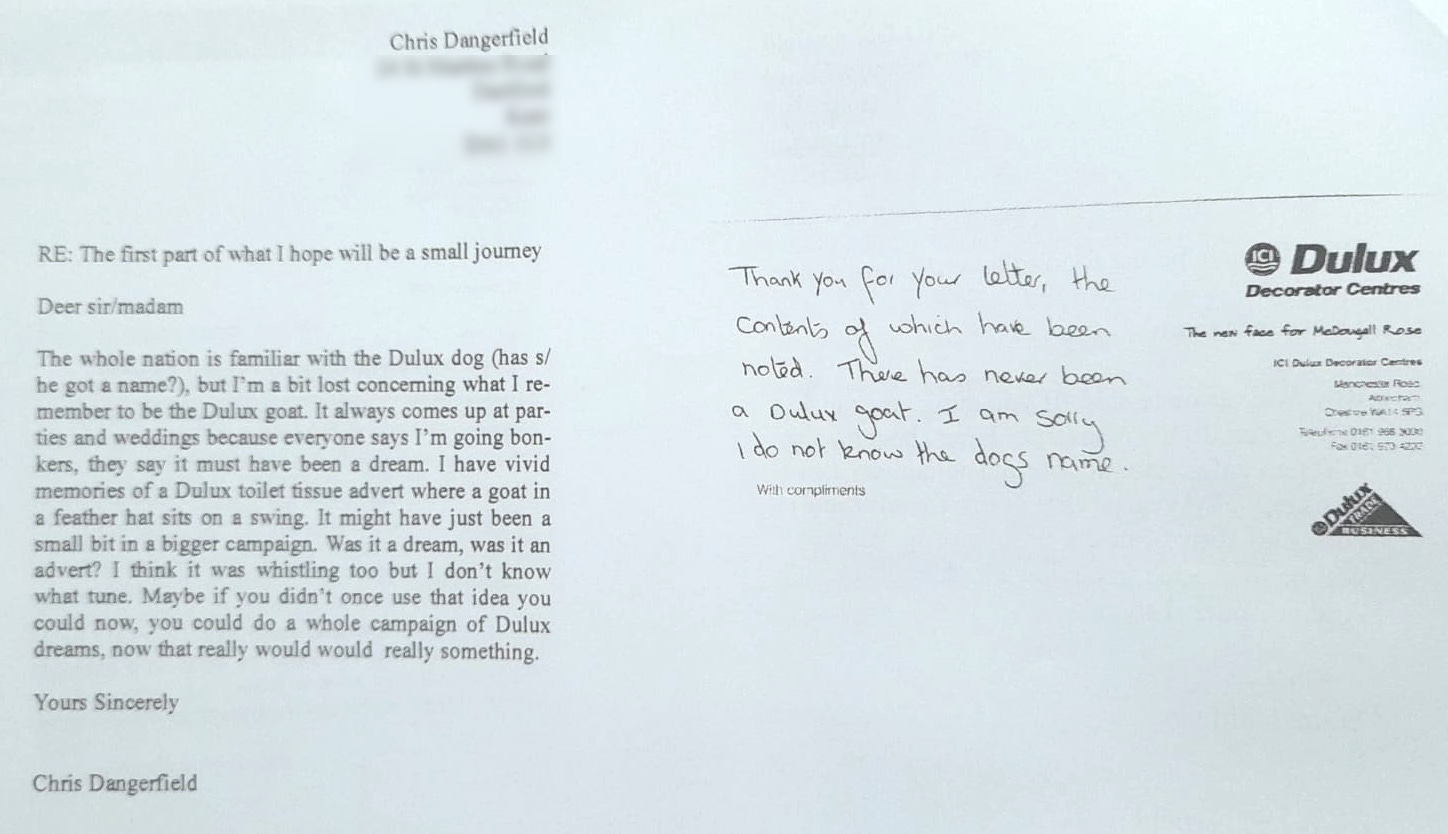 Chris Dangerfield
RE: The first part of what I hope will be a small journey
Deer sir/madam
The whole nation is familiar with the Dulux dog (has s/
he got a name?), but I'm a bit lost concerning what I re-
member to be the Dulux goat. It always comes up at par-
ties and weddings because everyone says I'm going bon-
kers, they say it must have been a dream. I have vivid
memories of a Dulux toilet tissue advert where a goat in
a feather hat sits on a swing. It might have just been a
small bit in a bigger campaign. Was it a dream, was it an
advert? I think it was whistling too but I don't know
what tune. Maybe if you didn't once use that idea you
could now, you could do a whole campaign of Dulux
dreams, now that really would would really something.
Yours Sincerely
Chris Dangerfield
Thank you for your letter, the
contents of which have been
noted. There has never been
a Dulux goat. I am sorry
I do not know the dogs name.
With compliments
ICI Dulux
Decorator Centres
The new face for McDougall Rose
ICI Dulux Decorator Centres
Manchester Road
Telephone 0161 968 3000
Dulux
TRADE
BUSINESS